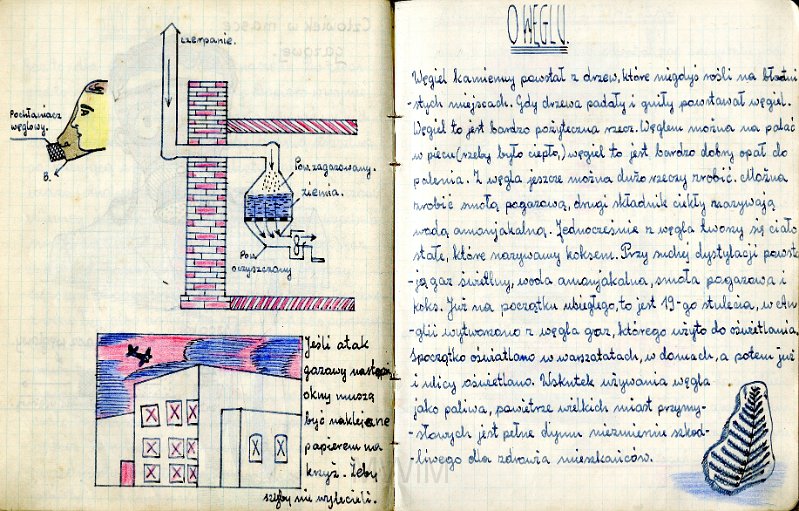 czerpanie.
Pochłaniacz
węglowy.
B.
Pow zagazowany.
ziemia.
Pow
oczyszczony
Jeśli atak
gazowy nastąpi
okny muszą
być naklejane
papierem na
krzyż. Żeby
szyby nie wylecieli.
O WĘGLU.
Węgiel kamienny powstał z drzew, które niegdyś rośli na błotni
stych miejscach. Gdy drzewa padały i gniły powstawał węgiel.
Węgiel to jest bardzo pożyteczna rzecz. Węglem można na palać
w piecu (żeby było ciepło,) węgiel to jest bardzo dobry opał do
palenia. Z węgla jeszcze można dużo rzeczy zrobić. Można
zrobić smołą pogazową, drugi składnik ciekły nazywają
wodą amonjakalną. Jednocześnie z węgla tworzy się ciało
stałe, które nazywamy koksem. Przy suchej dystylacji powsta
ją gaz świetlny, woda amonjakalna, smoła pogazowa i
koks. Już na początku ubiegłego, to jest 19-go stulecia, w An
-glii wytwarzano z węgla gaz, którego użyto do oświetlania.
Spoczątko oświatlano w warsztatach, w domach, a potem już
i ulicy oświetlano. Wskutek używania węgla
jako paliwa, powietrze wielkich miast przymy-
-słowych jest pełne dymu niezmiernie szkod-
-liwego dla zdrowia mieszkańców.
WIM